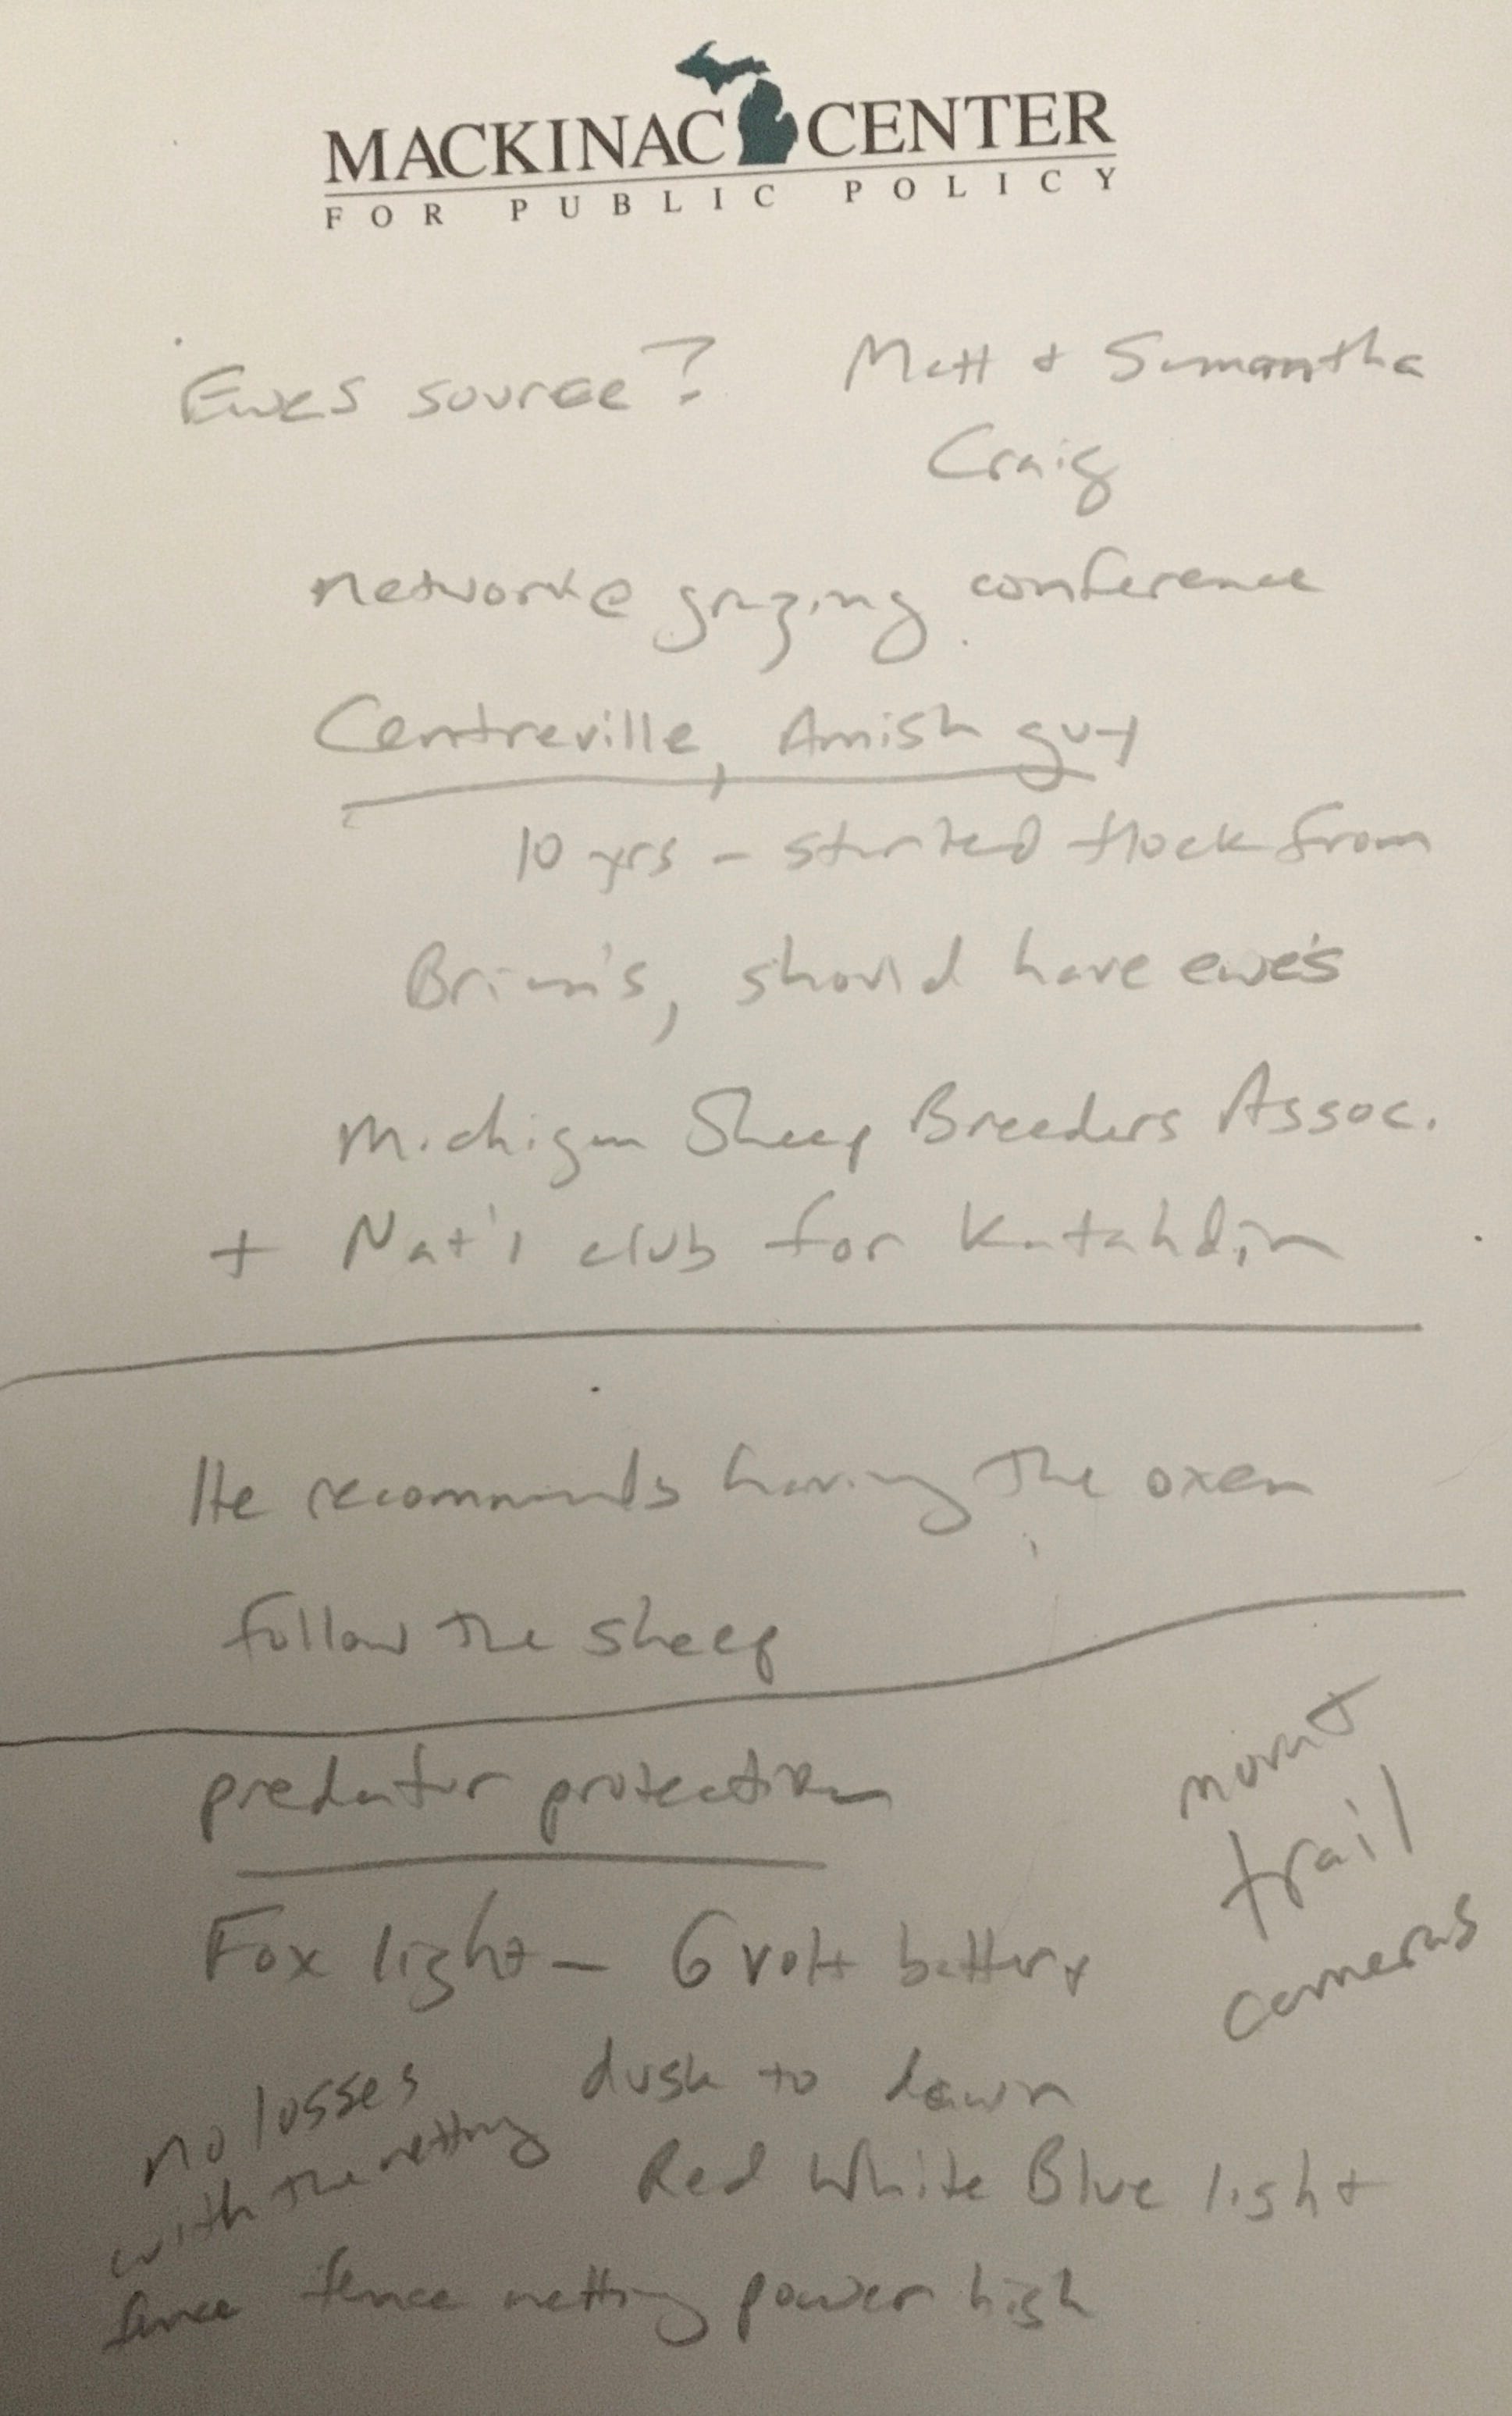 MACKINAC CENTER
FOR PUBLIC POLICY
Ewes source? Matt + Samantha
Craig
network @ grazing conference
Centreville, Amish guy
10 yrs - started flock from
Brian's, should have ewe's
Michigan Sheep Breeders Assoc.
+ Nat'l club for Katahdin
He recommends having the oxen
follow the sheep
predator protection
mount
trail
cameras
Fox light - 6 volt battery
dusk to dawn
Red White Blue light
no losses
with the netting
fence
fence netting power high